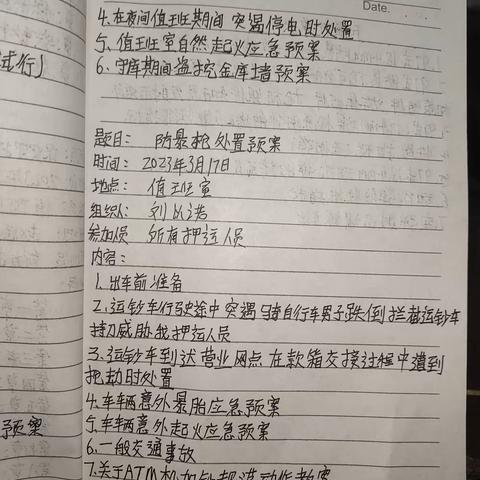 Date.
4.在夜间值班期间突遇停电时处置
试行)
5、值班室自然起火应急预案
6、守库期间盗挖金库墙预案
题目: 防暴枪处置预案
时间: 2023年3月17日
地点: 值班室
组织人:
参加人员 所有押运人员
内容:
1.出车前准备
2.运钞车行驶途中突遇骑自行车男子跌倒拦截运钞车
持刀威胁我押运人员
3.运钞车到达营业网点在款箱交接过程中遭到
抢劫时处置
4.车辆意外暴胎应急预案
5、车辆意外起火应急预案
预案
6.一般交通事故
7.关于ATM机加钞